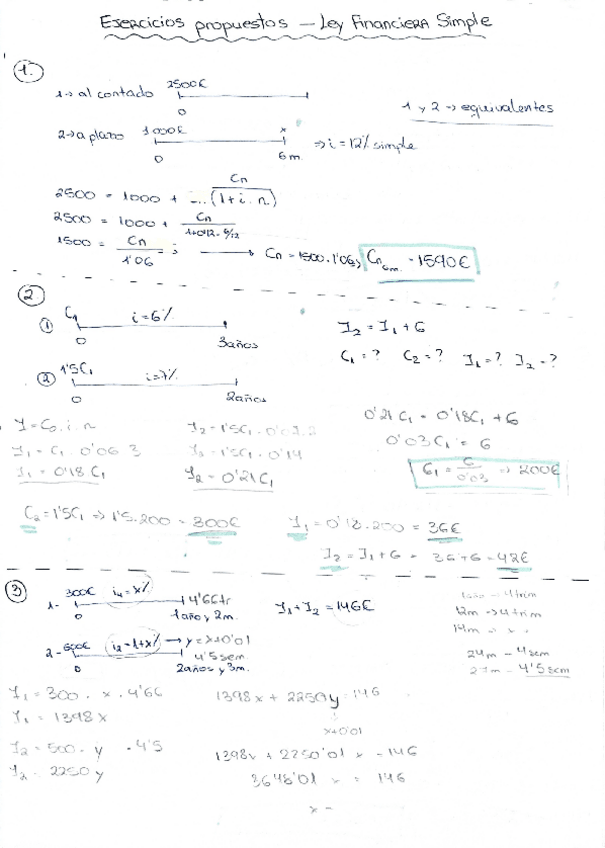 Ejercicios propuestos — Ley Financiera Simple
1.
1→ al contado 2500€
0
1 y 2 → equivalentes
2→ a plazo 1000€ x
0 6m. ⇒ i = 12% simple
2500 = 1000 + Cn / (1+i.n)
2500 = 1000 + Cn / 1+0'12.6/12
1500 = Cn / 1'06 ; → Cn = 1500.1'06; Cn 6m. = 1590€
2
① C1 i=6%
0 3años
I2 = I1 + 6
C1 = ? C2 = ? I1 = ? I2 = ?
② 1'5C1 i=7%
0 2años
I = C0.i.n
I1 = C1.0'06.3
I1 = 0'18 C1
I2 = 1'5C1.0'07.2
I2 = 1'5C1.0'14
I2 = 0'21 C1
0'21 C1 = 0'18C1 + 6
0'03 C1 = 6
C1 = 6 / 0'03 ⇒ 200€
C2 = 1'5C1 ⇒ 1'5.200 = 300€
I1 = 0'18.200 = 36€
I2 = I1 + 6 = 36+6 = 42€
3)
1- 300€ i1 = x% 4'66tr
0 1año y 2m.
I1 + I2 = 146€
2- 500€ i2 = 1+x% → y = x+0'01
4'5 sem
0 2años y 3m.
4 trim
12m → 4 trim
14m → x
24m - 4sem
27m - 4'5sem
I1 = 300 . x . 4'66
I1 = 1398 x
I2 = 500 . y . 4'5
I2 = 2250 y
1398x + 2250y = 146
x+0'01
1398x + 2250'01 x = 146
3648'01 x = 146
x =